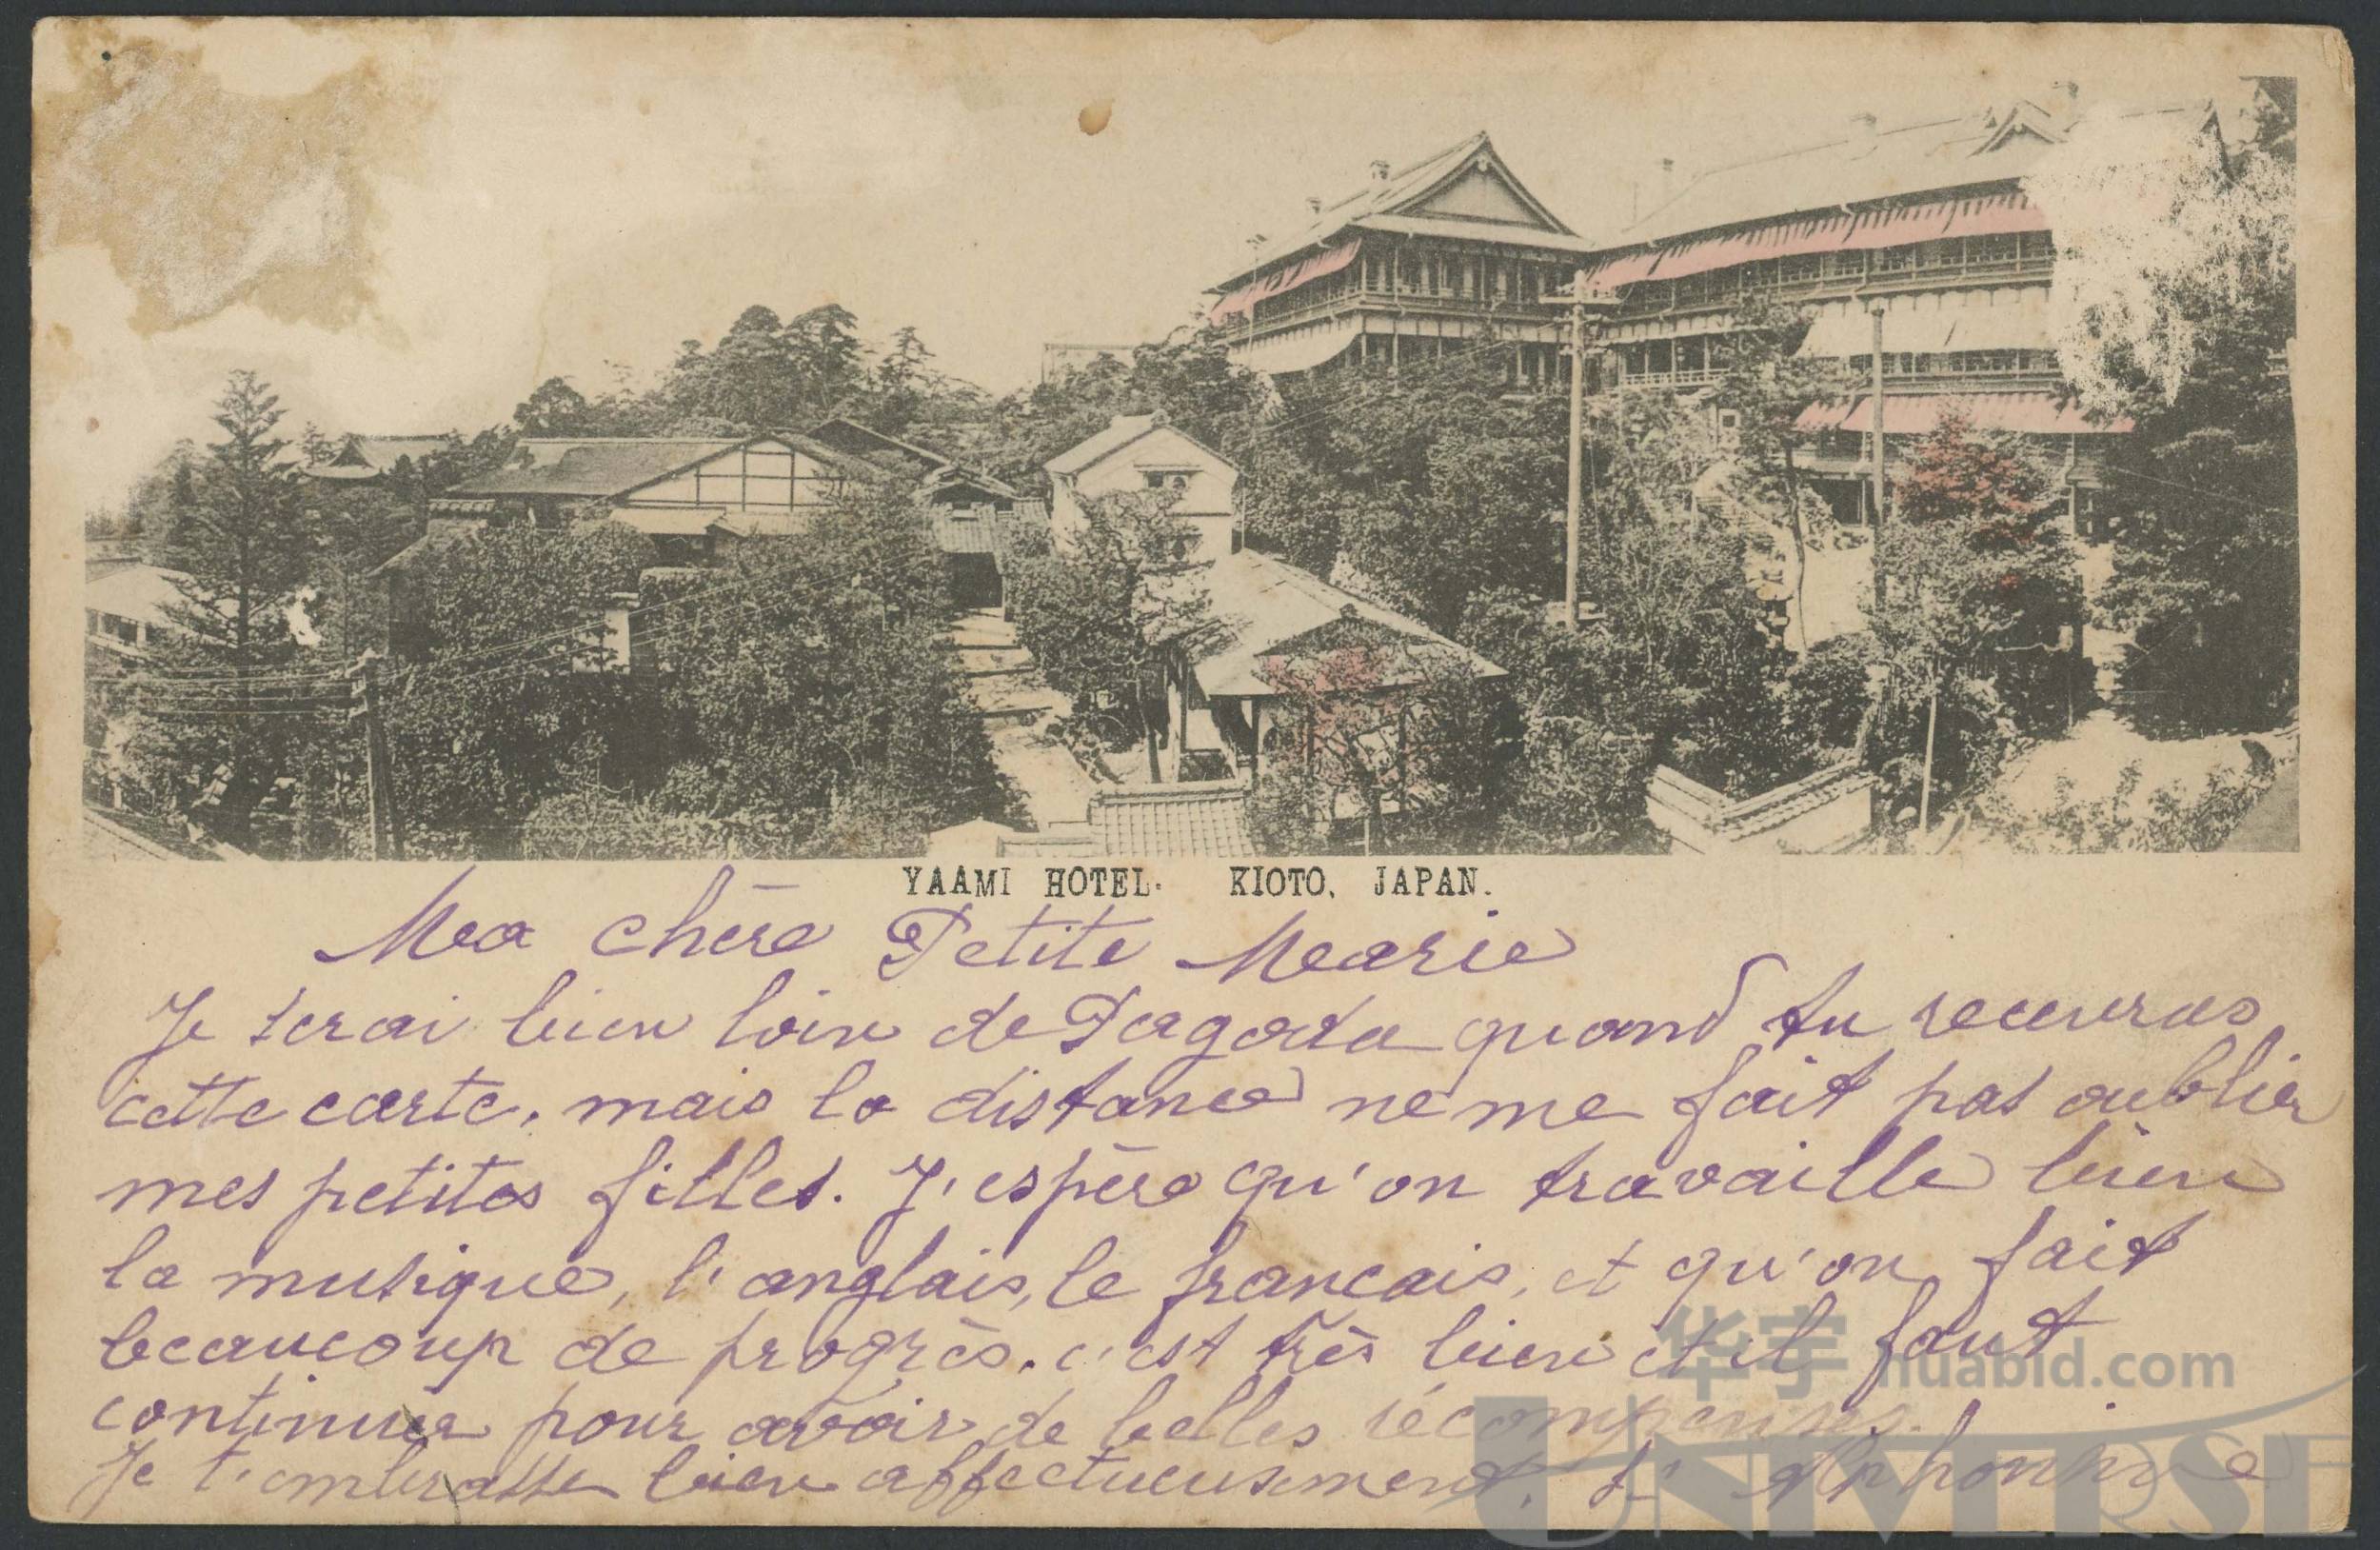 YAAMI HOTEL. KIOTO, JAPAN.
Ma chère Petite Marie
Je serai bien loin de Pagoda quand tu recevras
cette carte, mais la distance ne me fait pas oublier
mes petites filles. J'espère qu'on travaille bien
la musique, l'anglais, le francais, et qu'on fait
beaucoup de progrès. c'est très bien et il faut
continuer pour avoir de belles récompenses.
Je t'embrasse bien affectueusement. Alphonsine
华宇 huabid.com
UNIVERSE